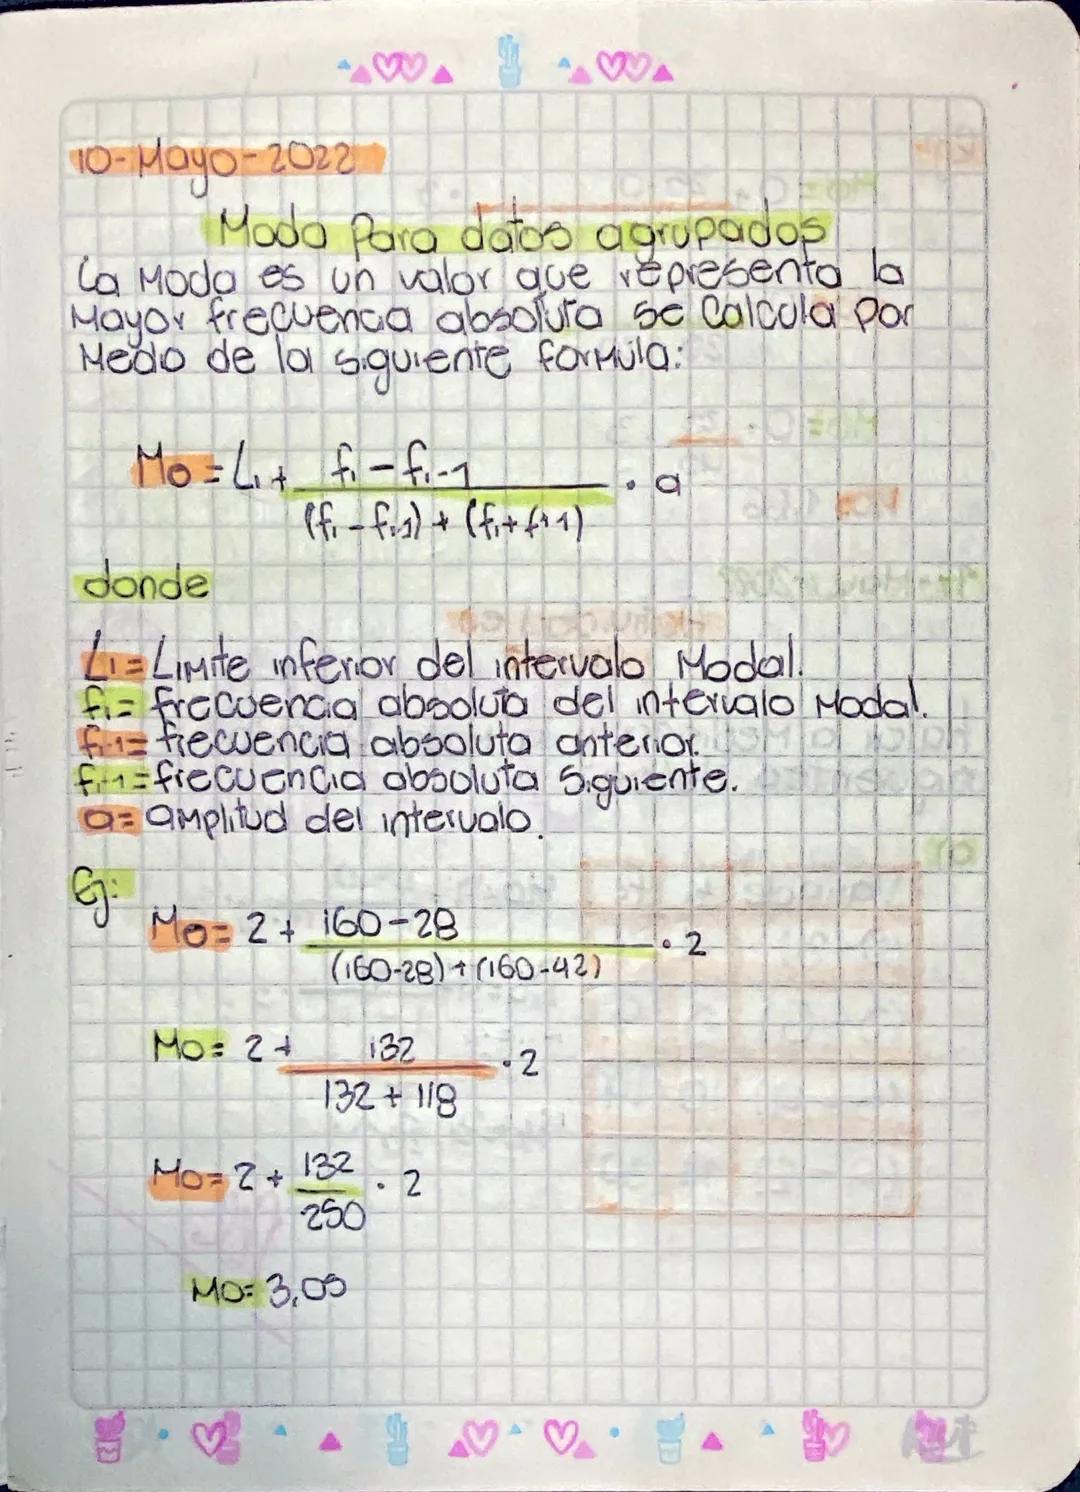 10-Mayo-2022
Moda para datos agrupados
La Moda es un valor que representa la
Mayor frecuencia absoluta se Calcula por
Medo de la siguiente forMula:
Mo = Li + fi - fi-1 / (fi - fi-1) + (fi + fi+1) · a
donde
Li = LiMite inferior del intervalo Modal.
fi = frecuencia absoluta del intervalo Modal.
fi-1 = frecuencia absoluta anterior.
fi+1 = frecuencia absoluta Siguiente.
a = aMplitud del intervalo.
Ej:
Mo = 2 + 160-28 / (160-28) + (160-42) · 2
Mo = 2 + 132 / 132 + 118 · 2
Mo = 2 + 132 / 250 · 2
Mo = 3,05